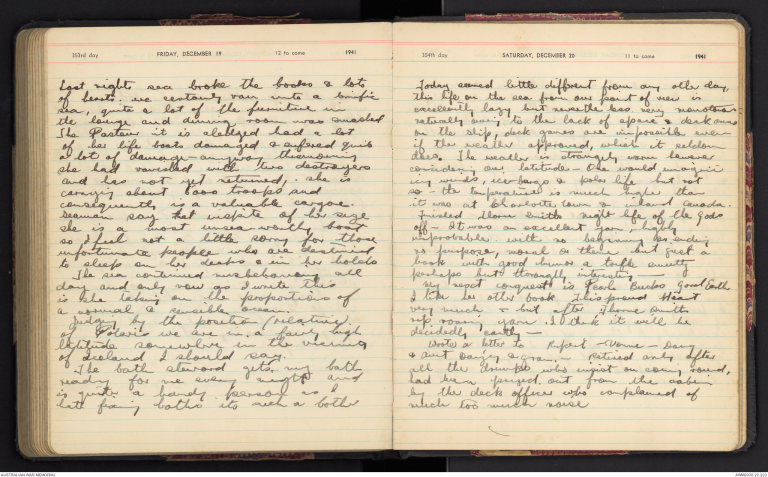 353rd day FRIDAY, DECEMBER 19 12 to come 1941
Last nights sea broke the books & lots
of hearts. we certainly ran into a terrific
sea, quite a lot of the furniture in
the lounge and dining room was smashed
The Pasteur it is alledged had a lot
of her life boats damaged & suffered quite
a lot of damage - anyway this morning
she had vanished with two destroyers
and has not yet returned. She is
carrying about 6000 troops and
consequently is a valuable cargoe.
Seamen say that inspite of her size
she is a most unsea-worthy boat
so I feel not a little sorry for those
unfortunate people who are destined
to sleep on her decks & in her holds
The sea continued misbehaving all
day and only now as I write this
is she taking on the proportions of
a normal & sensible ocean.
Judging by the position relative
of Polaris we are in a fairly high
latitude somewhere in the vicinity
of Iceland I should say.
The bath steward gets my bath
ready for me every night and
is quite a handy person as I
hate fixing baths its such a bother
354th day SATURDAY, DECEMBER 20 11 to come 1941
Today seemed little different from any other day
this life on the sea from one point of view is
excellently lazy but nevertheless very monotonous
naturally owing to the lack of space & deck room
on the ship, deck games are impossible even
if the weather approved, which it seldom
does. The weather is strangely warm however
considering our latitude - One would imagine
icy winds, ice-bergs & polar life but not
so - the temperature is much higher than
it was at Charlotte town & inland Canada.
Finished Thorne Smiths night life of the Gods
off - It was an excellent yarn, highly
improbable with no beginning or ending
no purpose, moral or theme but just a
book with good humor a trifle smutty
perhaps but thoroughly interesting -
My next conquest is Pearl Bucks Good Earth
I like her other book This proud Heart
very much & but after Thorne Smiths
rip roaring yarn I think it will be
decidedly earthy -
Wrote a letter to Rupert -
& aunt Daisy & gran. - Retired only after
all the drunks who insist on coming round,
had been put out from the cabin
by the deck officer who complained of
much too much noise
AUSTRALIAN WAR MEMORIAL